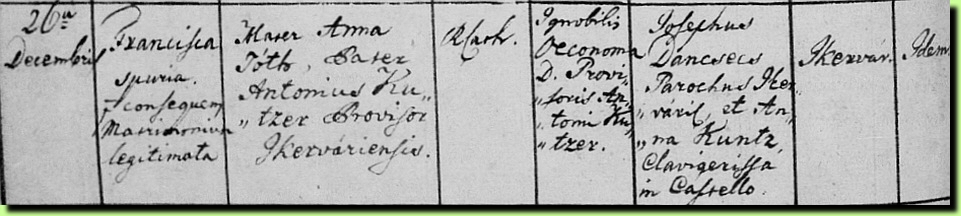 26a
Decembris
Francisca
spuria.
consequens
Matrimonium
legitimata
Mater Anna
Tóth, Pater
Antonius Ku„
„tzer Provisor
Ikerváriensis.
RCath.
Ignobilis
Oeconoma
D. Provi„
„soris An„
„tomi Ku„
„tzer.
Josephus
Dancsecs
Parochus Iker„
„várii, et An„
„na Kuntz,
Clavigerissa
in Castello.
Ikervár.
Idem